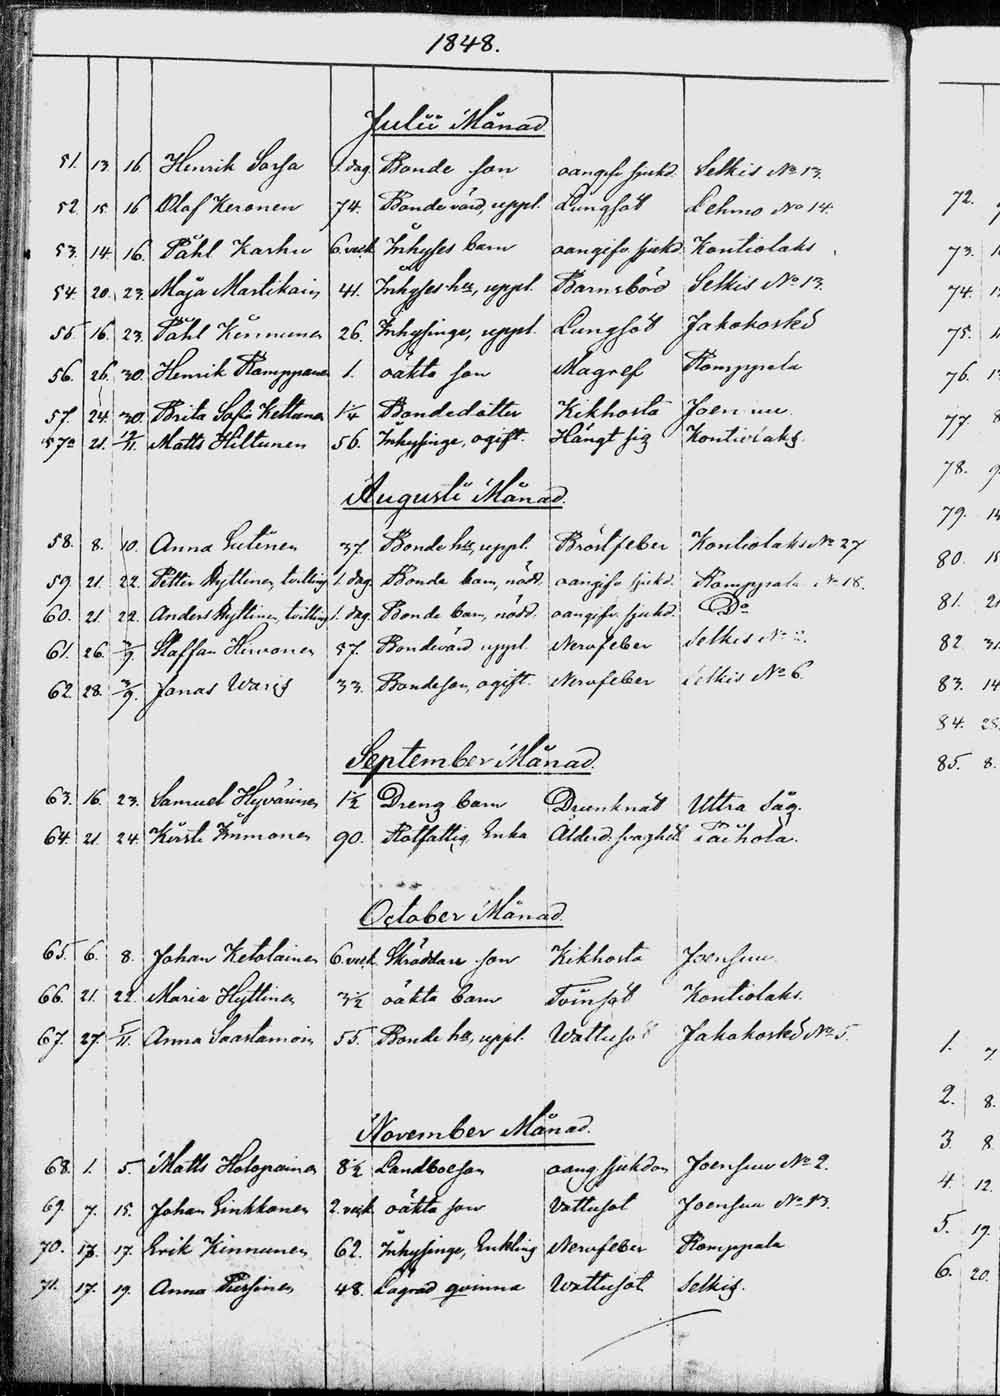 1848.
Julii Månad.
51. 13. 16. Henrik Sorsa 1. dag Bonde son oangifv. sjukd. Selkis No 13.
52. 15. 16 Olof Keronen 74. Bonde värd, uppl. Lungsot Lehmo No 14.
53. 14. 16. Påhl Karhu 6 veck Inhyses barn oangifv. sjukd. Kontiolaks
54. 20. 23. Maja Martikain 41. Inhyses hu, uppl. Barnsbörd Selkis No 13.
55. 16. 23. Påhl Kinnunen 26. Inhysinge, uppl. Lungsot Jakokoski
56. 26. 30. Henrik Romppanen 1. oäkta son Magref Romppala
57. 24. 30. Brita Sofi Kettunen 1/4 Bondedotter Kikhosta Joensuu.
57a 21. Matts Hiltunen 56. Inhysinge, ogift. Hängt sig Kontiolaks.
Augusti Månad.
58. 8. 10. Anna Gutinen 37. Bonde hu, uppl. Bröstfeber Kontiolaks No 27
59 21. 22. Petter Hyttinen, tvilling 1. dag. Bonde barn, nödd. oangifv. sjukd. Romppala No 18.
60. 21. 22. Anders Hyttinen, tvilling 1. dag. Bonde barn, nödd. oangifv. sjukd. Do
61. 26. 3/9. Staffan Hirvonen 57. Bondevärd uppl. Nervfeber Selkis No 2.
62. 28. 3/9. Jonas Waris 33. Bondeson, ogift. Nervfeber Selkis No 6.
September Månad.
63. 16. 23. Samuel Hyvärinen 1 1/2 Dreng barn Drunknat Uttra Såg.
64. 21. 24. Kirsti Immonen 90. Rotfattig Enka Ålderd. svaghet Paihola.
October Månad.
65. 6. 8. Johan Ketolainen 6. veck. Skräddare son Kikhosta Joensuu
66. 21. 22. Maria Hyttinen 3 1/2 oäkta barn Tvinsot Kontiolaks.
67. 27. 5/11. Anna Saastamoin 55. Bonde hu, uppl. Wattusot Jakokoski No 5.
November Månad.
68. 1. 5. Matts Holopainen 8 1/2 Landboeson oang. sjukdom Joensuu No 2.
69. 7. 15. Johan Sinkkonen 2. veck. oäkta son Vattusot Joensuu No 13.
70. 17. Erik Kinnunen 62. Inhysinge, Enkling Nervfeber Romppala
71. 17. 19. Anna Piirsinen 48. Lägrad qvinna Wattusot Selkis.
72.
73.
74.
75.
76.
77.
78.
79.
80.
81.
82.
83. 14
84.
85. 8.
1.
2. 8.
3. 8
4. 12.
5. 19.
6. 20.